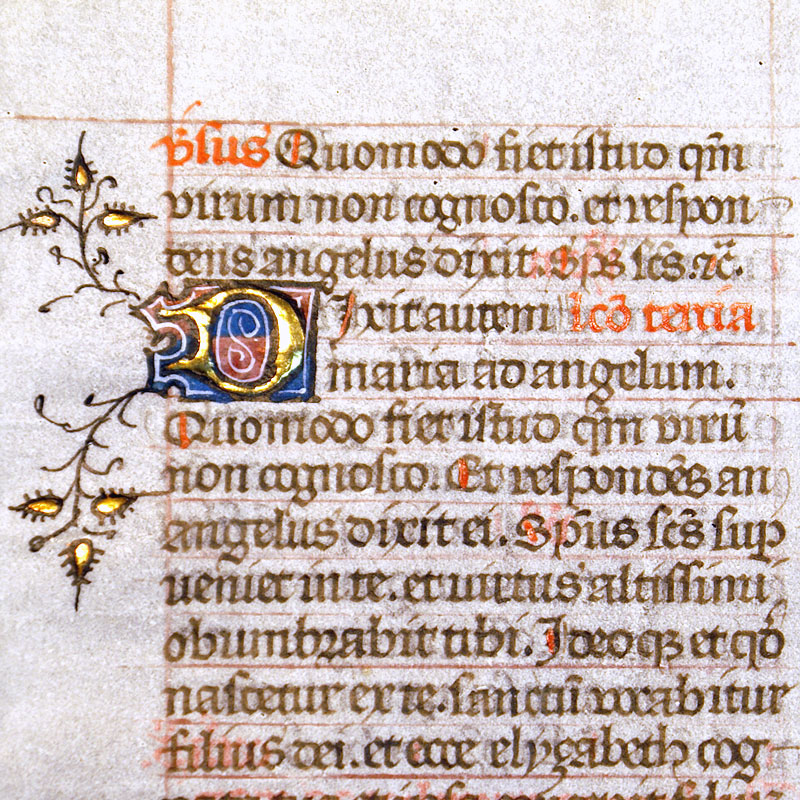 v̄sus Quomodo fiet istud qm̄
virum non cognosco. et respon
dens angelus dixit. Sp̄s sc̄s. ⁊c̄.
Dixit autem lcō tercia
maria ad angelum.
Quomodo fiet istud qm̄ virū
non cognosco. Et respondēs an
angelus dixit ei. Sp̄us sc̄s sup
veniet in te. et uirtus altissimi
obumbrabit tibi. Ideoqꝫ et qd̄
nascetur ex te. sanctū vocabitur
filius dei. et ecce elyzabeth cog